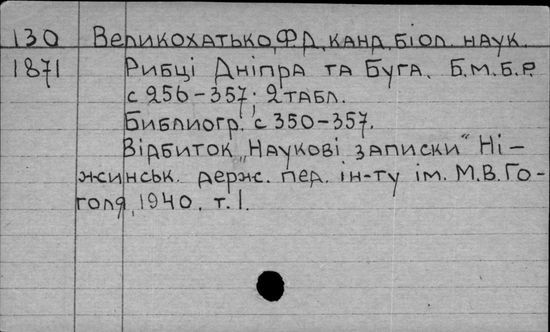 130 Великохатько, Ф.Д. канд. біол. наук.
1871 Рибці Дніпра та Буга. Б.М.Б.Р.
с 256-357; 2 табл.
Библиогр. с 350-357.
Відбиток „Наукові записки" Ні-
жинськ. держ. пед. ін-ту ім. М.В. Го-
голя, 1940. т.1.